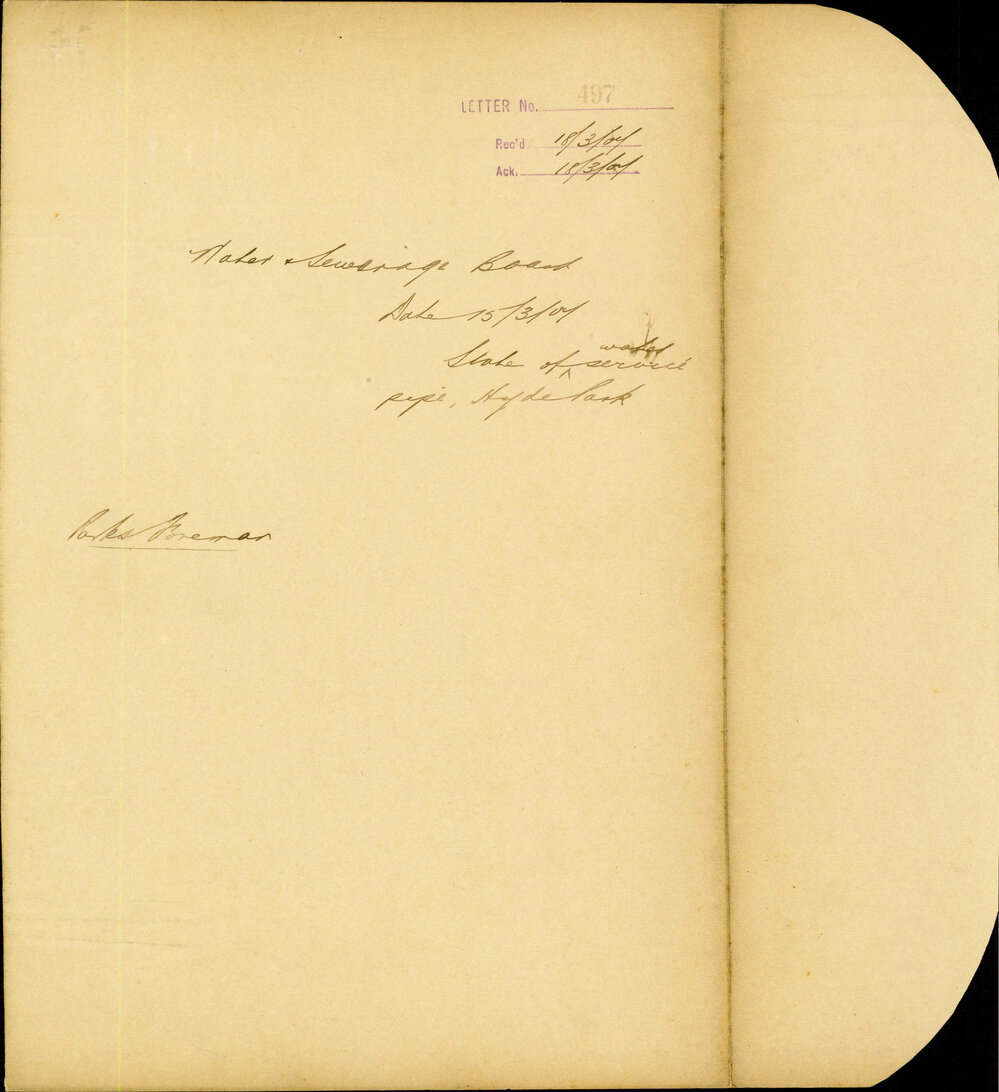 LETTER No. 497
Rec'd 18/3/04
Ack. 18/3/04
Water & Sewerage Board
Date 15/3/04
State of ^ water service
pipe, Hyde Park
Parks Foreman